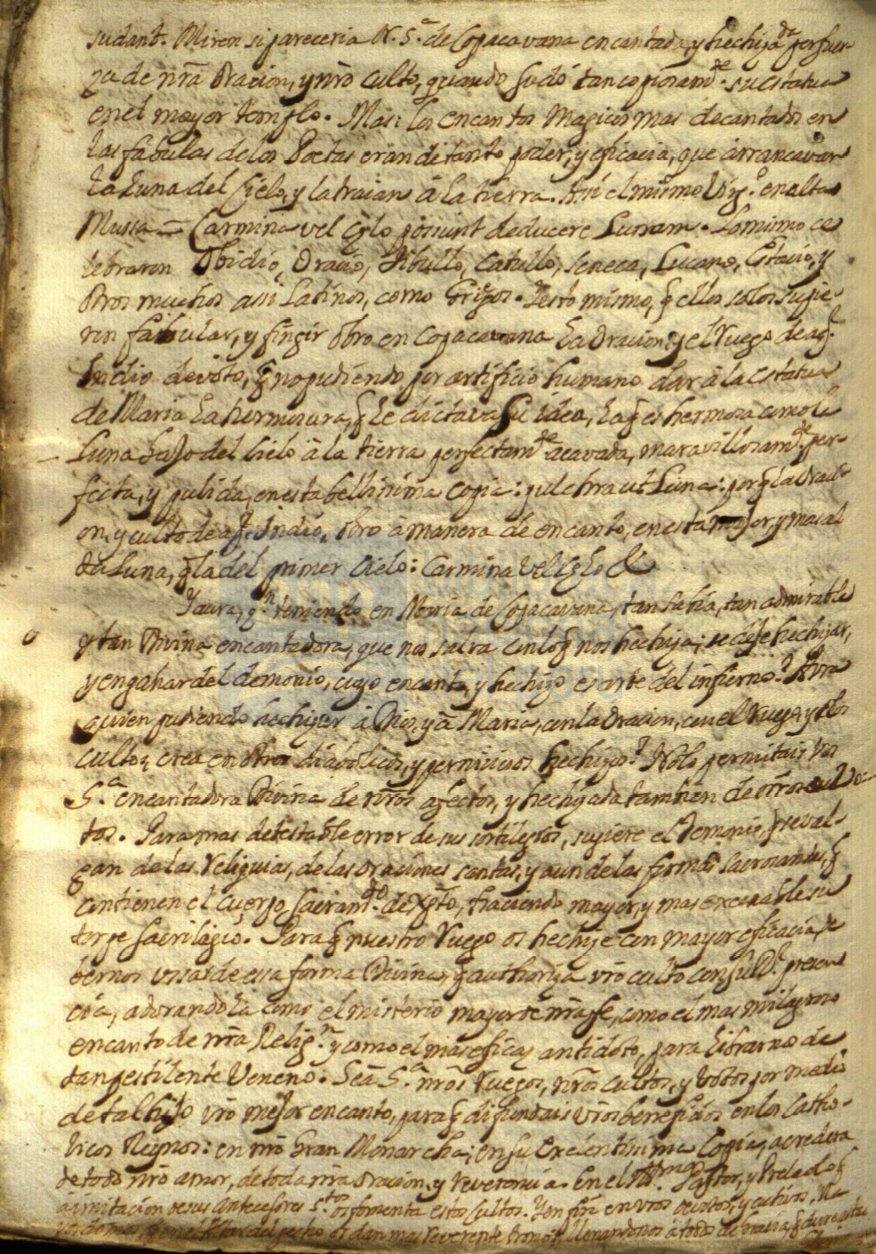 sudant. Miren si pareceria N. S.ª de Copacavana encantada, y hechijada por fuer-
za de nrã Oracion, y nrõ culto, quando sudó tan copiosam.te su estatua
en el mayor templo. Mas: los encantos Magicos mas decantados en
las fabulas de los Poetas eran de tanto poder, y eficacia, que arrancavan
la Luna del Cielo, y la traian à la tierra. Asi el mismo Virg.o en alta
Mussa = Carmina vel Cęlo possunt deducere Lunam. Lo mismo ce
lebraron Obidio, Oracio, Tibullo, Catullo, Seneca, Lucano, Estacio, y
otros muchos asi Latinos, como Griegos. Y esto mismo, q̃ ellos solos supie-
ron fabular, y fingir obro en Copacavana la Oracion, y el ruego de aq.l
Indio devoto, q̃ no pudiendo por artificio humano dar à la estatua
de Maria la hermosura, q̃ le dictava su idea, la q̃ es hermosa como la
Luna bajo del Cielo à la tierra perfectam.te acavada, maravillosam.te per-
fecta, y pulida, en esta bellissima copia: pulchra ut Luna: porq̃ la Oraci-
on, y culto de aq.l Indio, obro à manera de encanto, en esta mejor, y mas al
ta Luna, q̃ la del primer Cielo: Carmina vel Cęlo &
Y aura, q.n teniendo en Maria de Copacavana, tan sabia, tan admirable
y tan Divina encantadora, que nos salva con lo q̃ nos hechija; se deje hechijar,
y engañar del demonio, cuyo encanto, y hechizo es arte del infierno? Avra
quien pudiendo hechijar à Dios, y à Maria, con la Oracion, con el ruego, y los
cultos, crea en otros diabolicos, y perniciosos hechizos? No lo permitais vos
S.ª encantadora Divina de nrõs afectos, y hechijada tambien de nrõs cul-
tos. Para mas detestable error de sus sortilegios, sugiere el Demonio, se val-
gan de las reliquias, de las oraciones santas, y aun de las formas sacrosantas, q̃
contienen el cuerpo Sacram.do de Xp̃to, haciendo mayor, y mas execrable su
torpe sacrilegio. Para q̃ nuestro ruego os hechije con mayor eficacia,
bemos usar de esa forma Divina, q̃ authoriza vrõ culto con su R.l presen
cia, adorandola como el misterio mayor de nrã fe, como el mas milagroso
encanto de nrã Relig.n y como el mas eficaz antidoto, para librarnos de
tan pestilente veneno. Sean S.ª nrõs ruegos, nrõs cultos, y votos por medio
de tal hijo vrõ mejor encanto, para q̃ difundais vrõs beneficios en los Catho-
licos Reynos: en nrõ Gran Monarcha; en su Excelentissima Copia, acreedora
de todo nrõ amor, de toda nrã Oracion, y reverencia. En el Ill.mo Pastor, y Prelado q̃
à imitacion de sus Antecesores S.tos os fomenta estos cultos. Y en fin en vrõs devotos, y cautivos,
el Altar del pecho os dan mas reverente trono llenandonos a todos de gracia